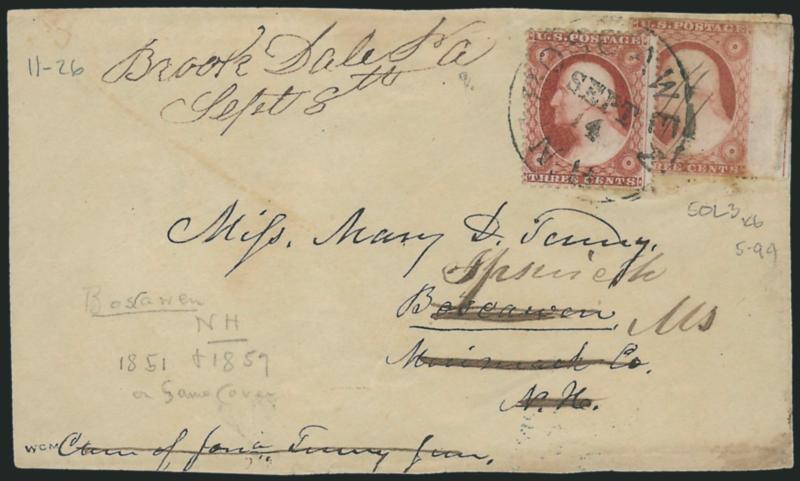 11-26
Brook Dale Pa
Sept 8th
U.S. POSTAGE
THREE CENTS
U.S. POSTAGE
EE CENTS
BOSCAWEN N.H.
SEPT
14
50L3 x6
5-99
Miss. Mary D. Tenny.
Ipswich
Boscawen, Ms
Merrimack Co.
N. H.
Boscawen
NH
1851 + 1857
on Same Cover
WCM
Care of Tenny